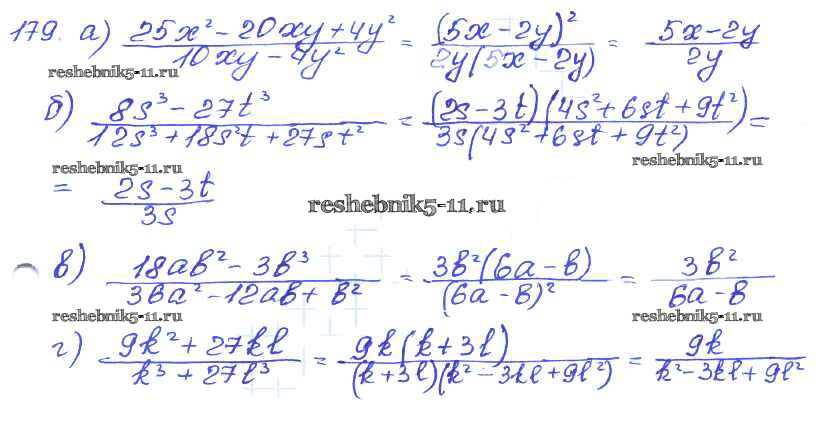 179. а) (25x² - 20xy + 4y²)/(10xy - 4y²) = (5x - 2y)²/(2y(5x - 2y)) = (5x - 2y)/(2y)
reshebnik5-11.ru
б) (8s³ - 27t³)/(12s³ + 18s²t + 27st²) = (2s - 3t)(4s² + 6st + 9t²)/(3s(4s² + 6st + 9t²)) =
reshebnik5-11.ru reshebnik5-11.ru
= (2s - 3t)/(3s)
reshebnik5-11.ru
в) (18ab² - 3b³)/(36a² - 12ab + b²) = 3b²(6a - b)/(6a - b)² = 3b²/(6a - b)
reshebnik5-11.ru reshebnik5-11.ru
г) (9k² + 27kl)/(k³ + 27l³) = 9k(k + 3l)/((k + 3l)(k² - 3kl + 9l²)) = 9k/(k² - 3kl + 9l²)